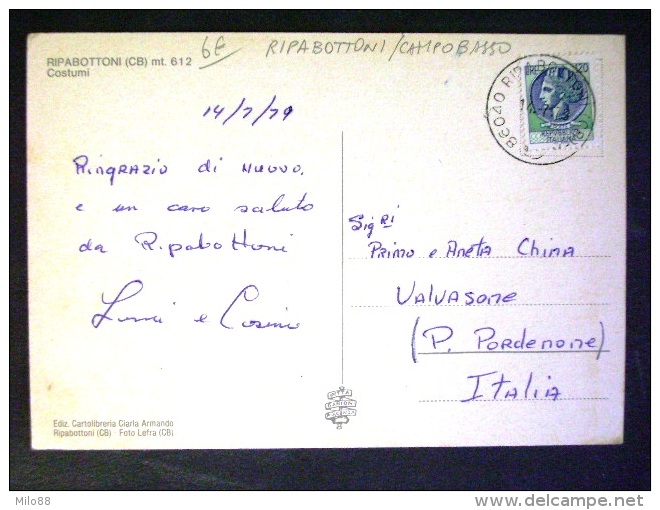 RIPABOTTONI (CB) mt. 612
Costumi
6€ RIPABOTTONI/CAMPOBASSO
14/7/79
Ringrazio di nuovo.
e un caro saluto
da Ripabottoni
e Cosimo
86040 RIPABOTTONI
120
Sigri
Primo e Aneta China
Valvasone
(P. Pordenone)
Italia
DITTA
Ediz. Cartolibreria Ciarla Armando
Ripabottoni (CB) - Foto Lefra (CB)
Milo88
delcampe.net